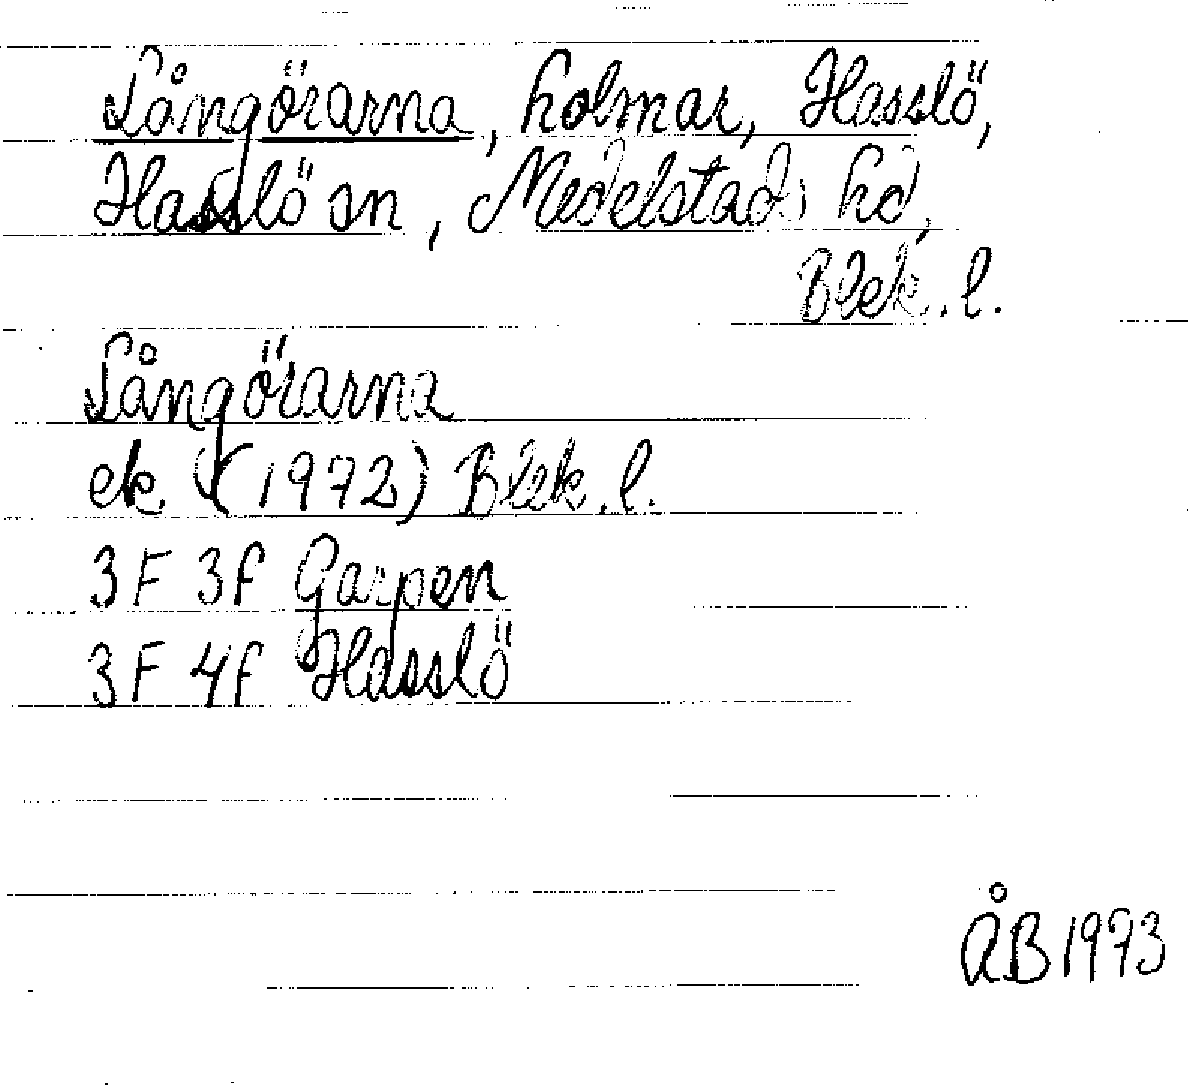 Långörarna, holmar, Hasslö,
Hasslö sn, Medelstads hd,
Blek. l.
Långörarna
ek (1972) Blek. l.
3F 3f Garpen
3F 4f Hasslö
ÅB 1973